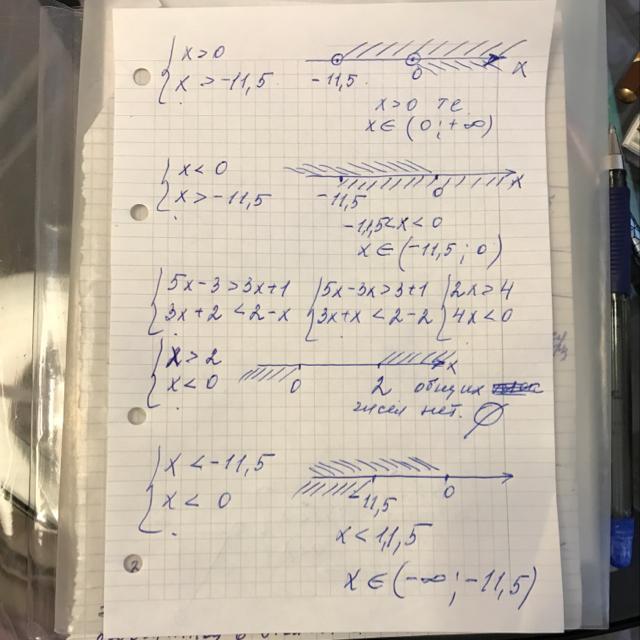 { x > 0
{ x > -11,5
-11,5 0 x
x > 0 те
x ∈ (0 ; +∞)
{ x < 0
{ x > -11,5
-11,5 0 x
-11,5 < x < 0
x ∈ (-11,5 ; 0)
{ 5x-3 > 3x+1 { 5x-3x > 3+1 { 2x > 4
{ 3x+2 < 2-x { 3x+x < 2-2 { 4x < 0
{ x > 2
{ x < 0
0 2 x
общих
чисел нет. ∅
{ x < -11,5
{ x < 0
-11,5 0
x < 11,5
x ∈ (-∞ ; -11,5)
2